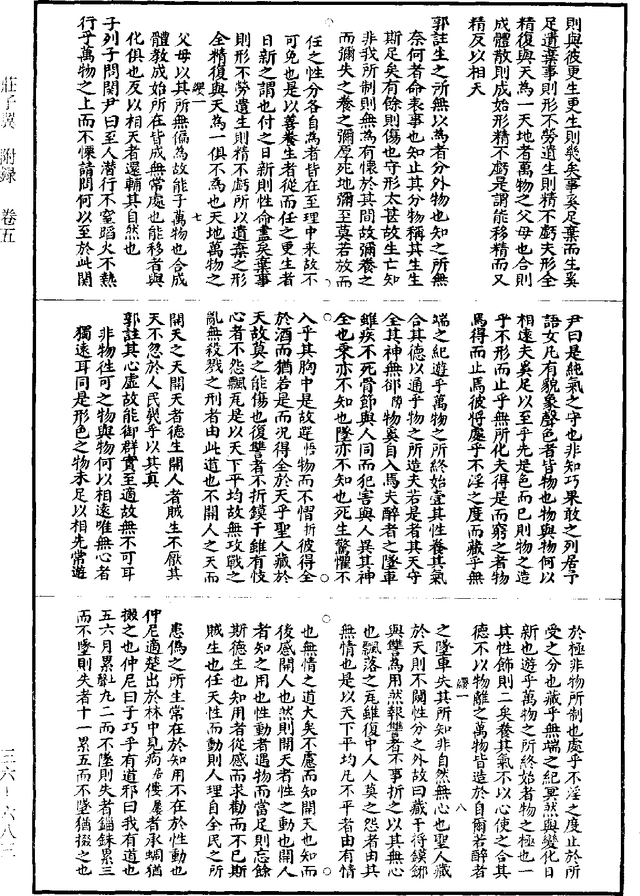 則與彼更生更生則幾矣事奚足棄而生奚
足遺棄事則形不勞遺生則精不虧夫形全
精復與天為一天地者萬物之父母也合則
成體散則成始形精不虧是謂能移精而又
精反以相天
郭註生之所無以為者分外物也知之所無
奈何者命表事也知止其分物稱其生生
斯足矣有餘則傷也守形太甚故生亡知
非我所制則無為有懷於其間故彌養之
而彌失之養之彌厚死地彌至莫若放而
任之性分各自為者皆在至理中來故不
可免也是以善養生者從而任之更生者
日新之謂也付之日新則性命盡矣棄事
則形不勞遺生則精不虧所以遺棄之形
全精復與天為一俱不為也天地萬物之
繆一 七
父母以其所無偏為故能子萬物也合成
體教成始所在皆成無常處也能移者與
化俱也反以相天者還輔其自然也
子列子問關尹曰至人潛行不窒蹈火不熱
行乎萬物之上而不慄請問何以至於此關
尹曰是純氣之守也非知巧果敢之列居予
語女凡有貌象聲色者皆物也物與物何以
相遠夫奚足以至乎先是色而已則物之造
乎不形而止乎無所化夫得是而窮之者物
焉得而止焉彼將處乎不淫之度而藏乎無
端之紀遊乎萬物之所終始壹其性養其氣
合其德以通乎物之所造夫若是者其天守
全其神無郤隙物奚自入焉夫醉者之墜車
雖疾不死骨節與人同而犯害與人異其神
全也乘亦不知也墜亦不知也死生驚懼不
入乎其胸中是故遻悟物而不慴折彼得全
於酒而猶若是而況得全於天乎聖人藏於
天故莫之能傷也復讐者不折鏌干雖有忮
心者不怨飄瓦是以天下平均故無攻戰之
亂無殺戮之刑者由此道也不開人之天而
開天之天開天者德生開人者賊生不厭其
天不忽於人民幾乎以其真
郭註其心虛故能御群實至適故無不可耳
非物往可之物與物何以相遠唯無心者
獨遠耳同是形色之物未足以相先常遊
於極非物所制也處乎不淫之度止於所
受之分也藏乎無端之紀冥然與變化日
新也遊乎萬物之所終始者物之極也一
其性飾則二矣養其氣不以心使之合其
德不以物離之萬物皆造於自爾若醉者
繆一 八
之墜車失其所知非自然無心也聖人藏
於天則不闚性分之外故曰藏干將鏌鋣
與讐為用然報讐者不事折之以其無心
也飄落之瓦雖復中人人莫之怨者由其
無情也是以天下平均凡不平者由有情
也無情之道大矣不慮而知開天也知而
後感開人也然則開天者性之動也開人
者知之用也性動者遇物而當足則忘餘
斯德生也知用者從感而求勸而不已斯
賊生也任天性而動則人理自全民之所
患偽之所生常在於知用不在於性動也
仲尼適楚出於林中見痀居僂屢者承蜩猶
掇之也仲尼曰子巧乎有道邪曰我有道也
五六月累䠱九二而不墜則失者錙銖累三
而不墜則失者十一累五而不墜猶掇之也
莊子翼 附録 卷五
三六―六八三